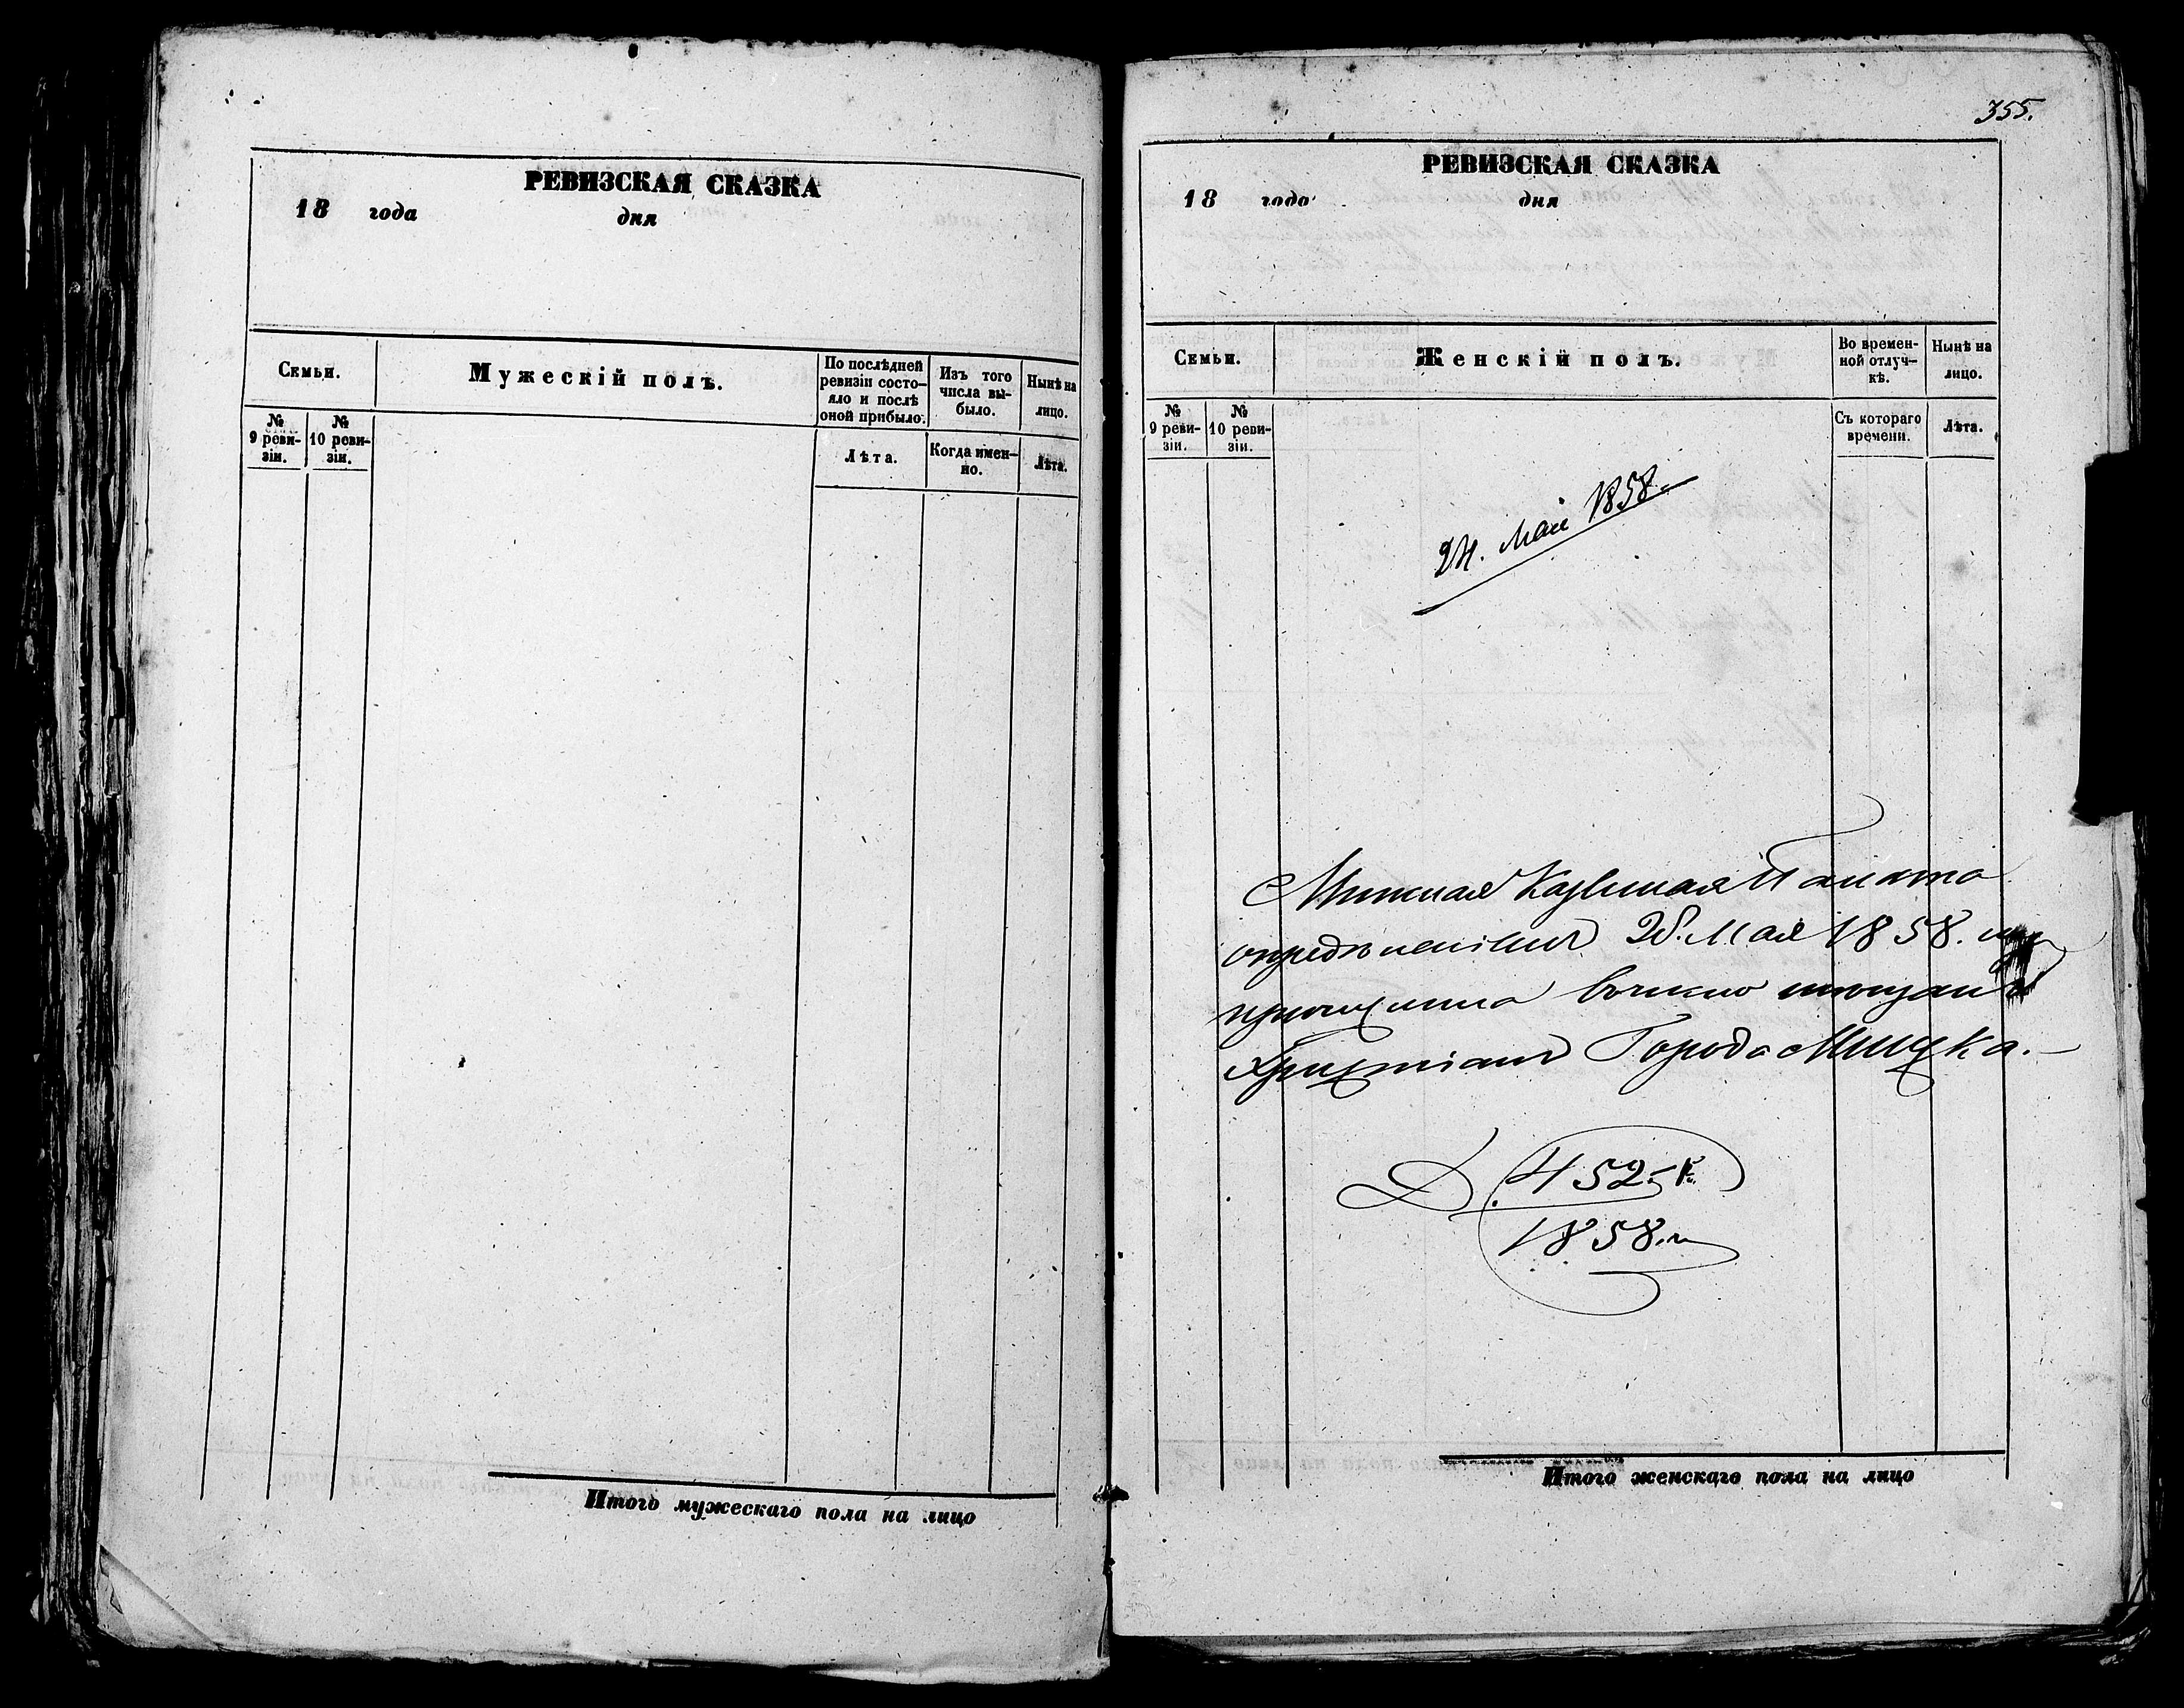 РЕВИЗСКАЯ СКАЗКА
18 года дня
Семьи.
Мужескій полъ.
По послѣдней
ревизіи состо-
яло и послѣ
оной прибыло.
Изъ того
числа вы-
было.
Нынѣ на
лицо.
№
9 реви-
зіи.
№
10 реви-
зіи.
Лѣта.
Когда имен-
но.
Лѣта.
Итого мужескаго пола на лицо
355.
РЕВИЗСКАЯ СКАЗКА
18 года дня
Семьи.
Женскій полъ.
Во времен-
ной отлуч-
кѣ.
Нынѣ на
лицо.
№
9 реви-
зіи.
№
10 реви-
зіи.
Съ котораго
времени.
Лѣта.
24. Май 1858.
Минская Казенная Палата
опредѣленіемъ 28. Мая 1858.
причислила мѣщанъ
Христіанъ Города Минска.
Д. 452
1858.
Итого женскаго пола на лицо